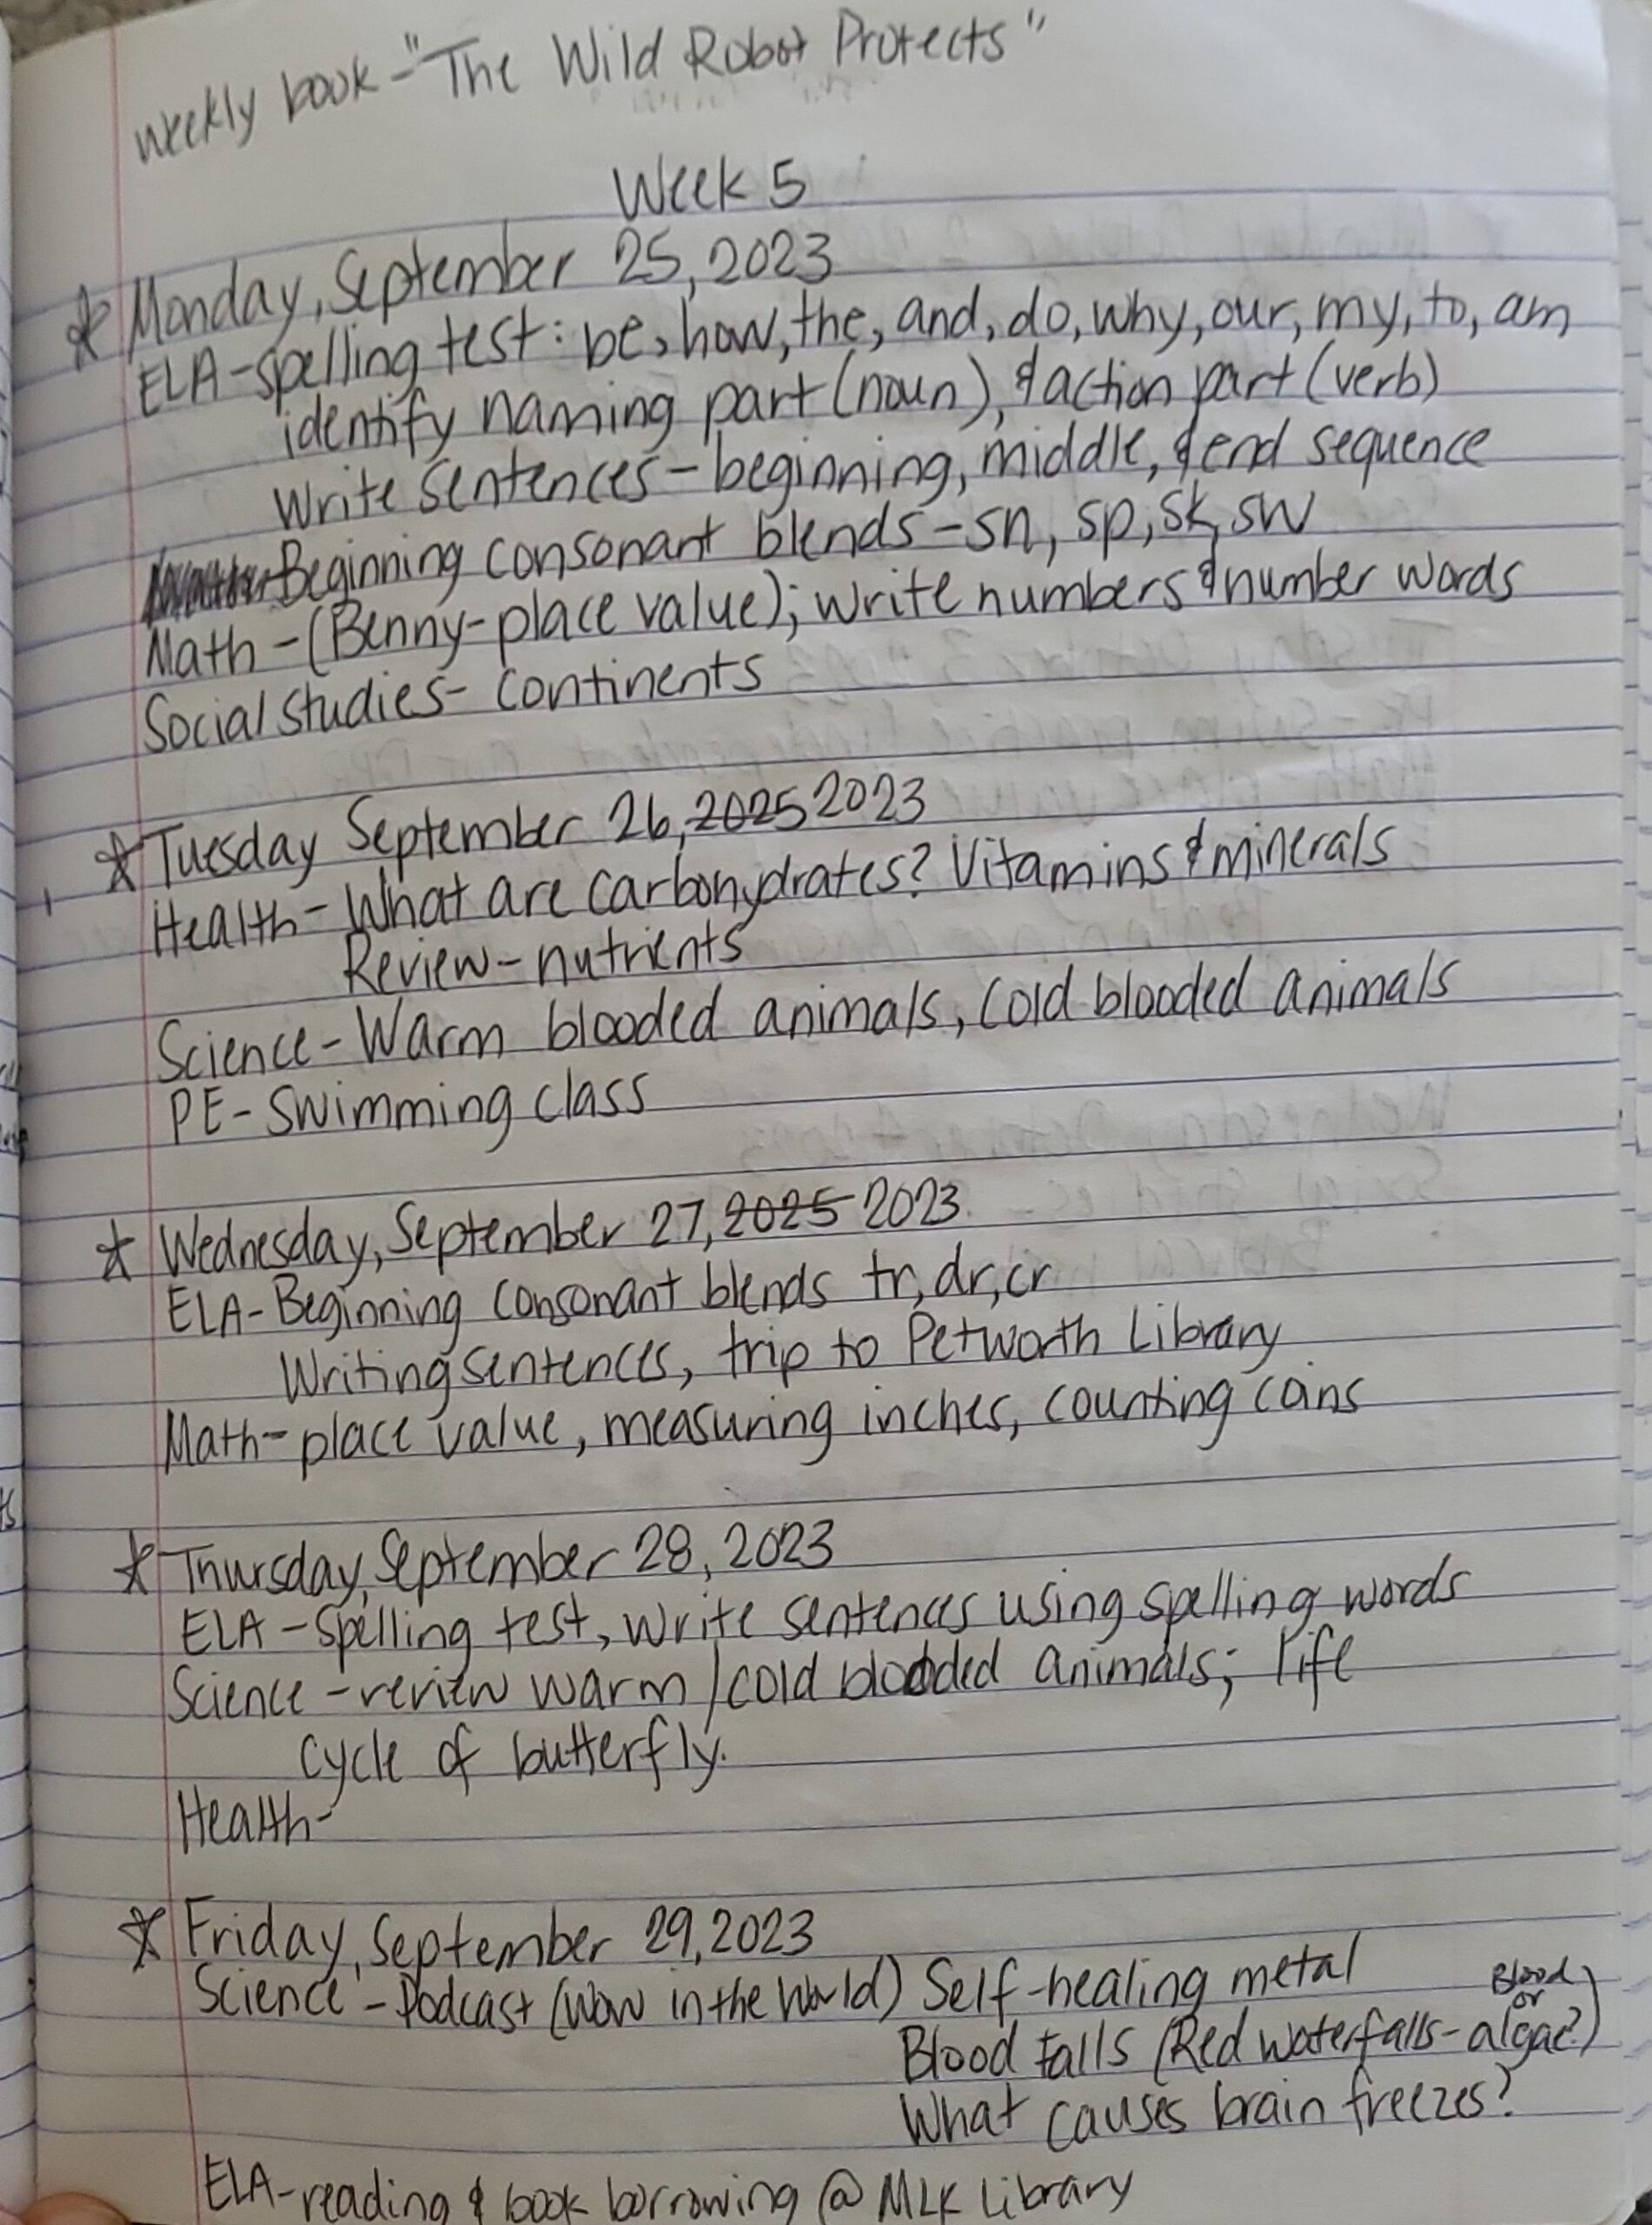 weekly book - "The Wild Robot Protects"
Week 5
* Monday, September 25, 2023
ELA - spelling test: be, how, the, and, do, why, our, my, to, am
identify naming part (noun), & action part (verb)
Write sentences - beginning, middle, & end sequence
Beginning consonant blends - sn, sp, sk, sw
Math - (Benny - place value); write numbers & number words
Social studies - Continents
* Tuesday September 26, 2025 2023
Health - What are carbohydrates? Vitamins & minerals
Review - nutrients
Science - Warm blooded animals, cold blooded animals
PE - Swimming class
* Wednesday, September 27, 2025 2023
ELA - Beginning consonant blends tr, dr, cr
Writing sentences, trip to Petworth Library
Math - place value, measuring inches, counting coins
* Thursday, September 28, 2023
ELA - Spelling test, write sentences using spelling words
Science - review warm / cold blooded animals; life
cycle of butterfly.
Health -
* Friday, September 29, 2023
Science - Podcast (Wow in the World) Self-healing metal
Blood Falls (Red waterfalls - Blood or algae?)
What causes brain freezes?
ELA - reading & book borrowing @ MLK Library